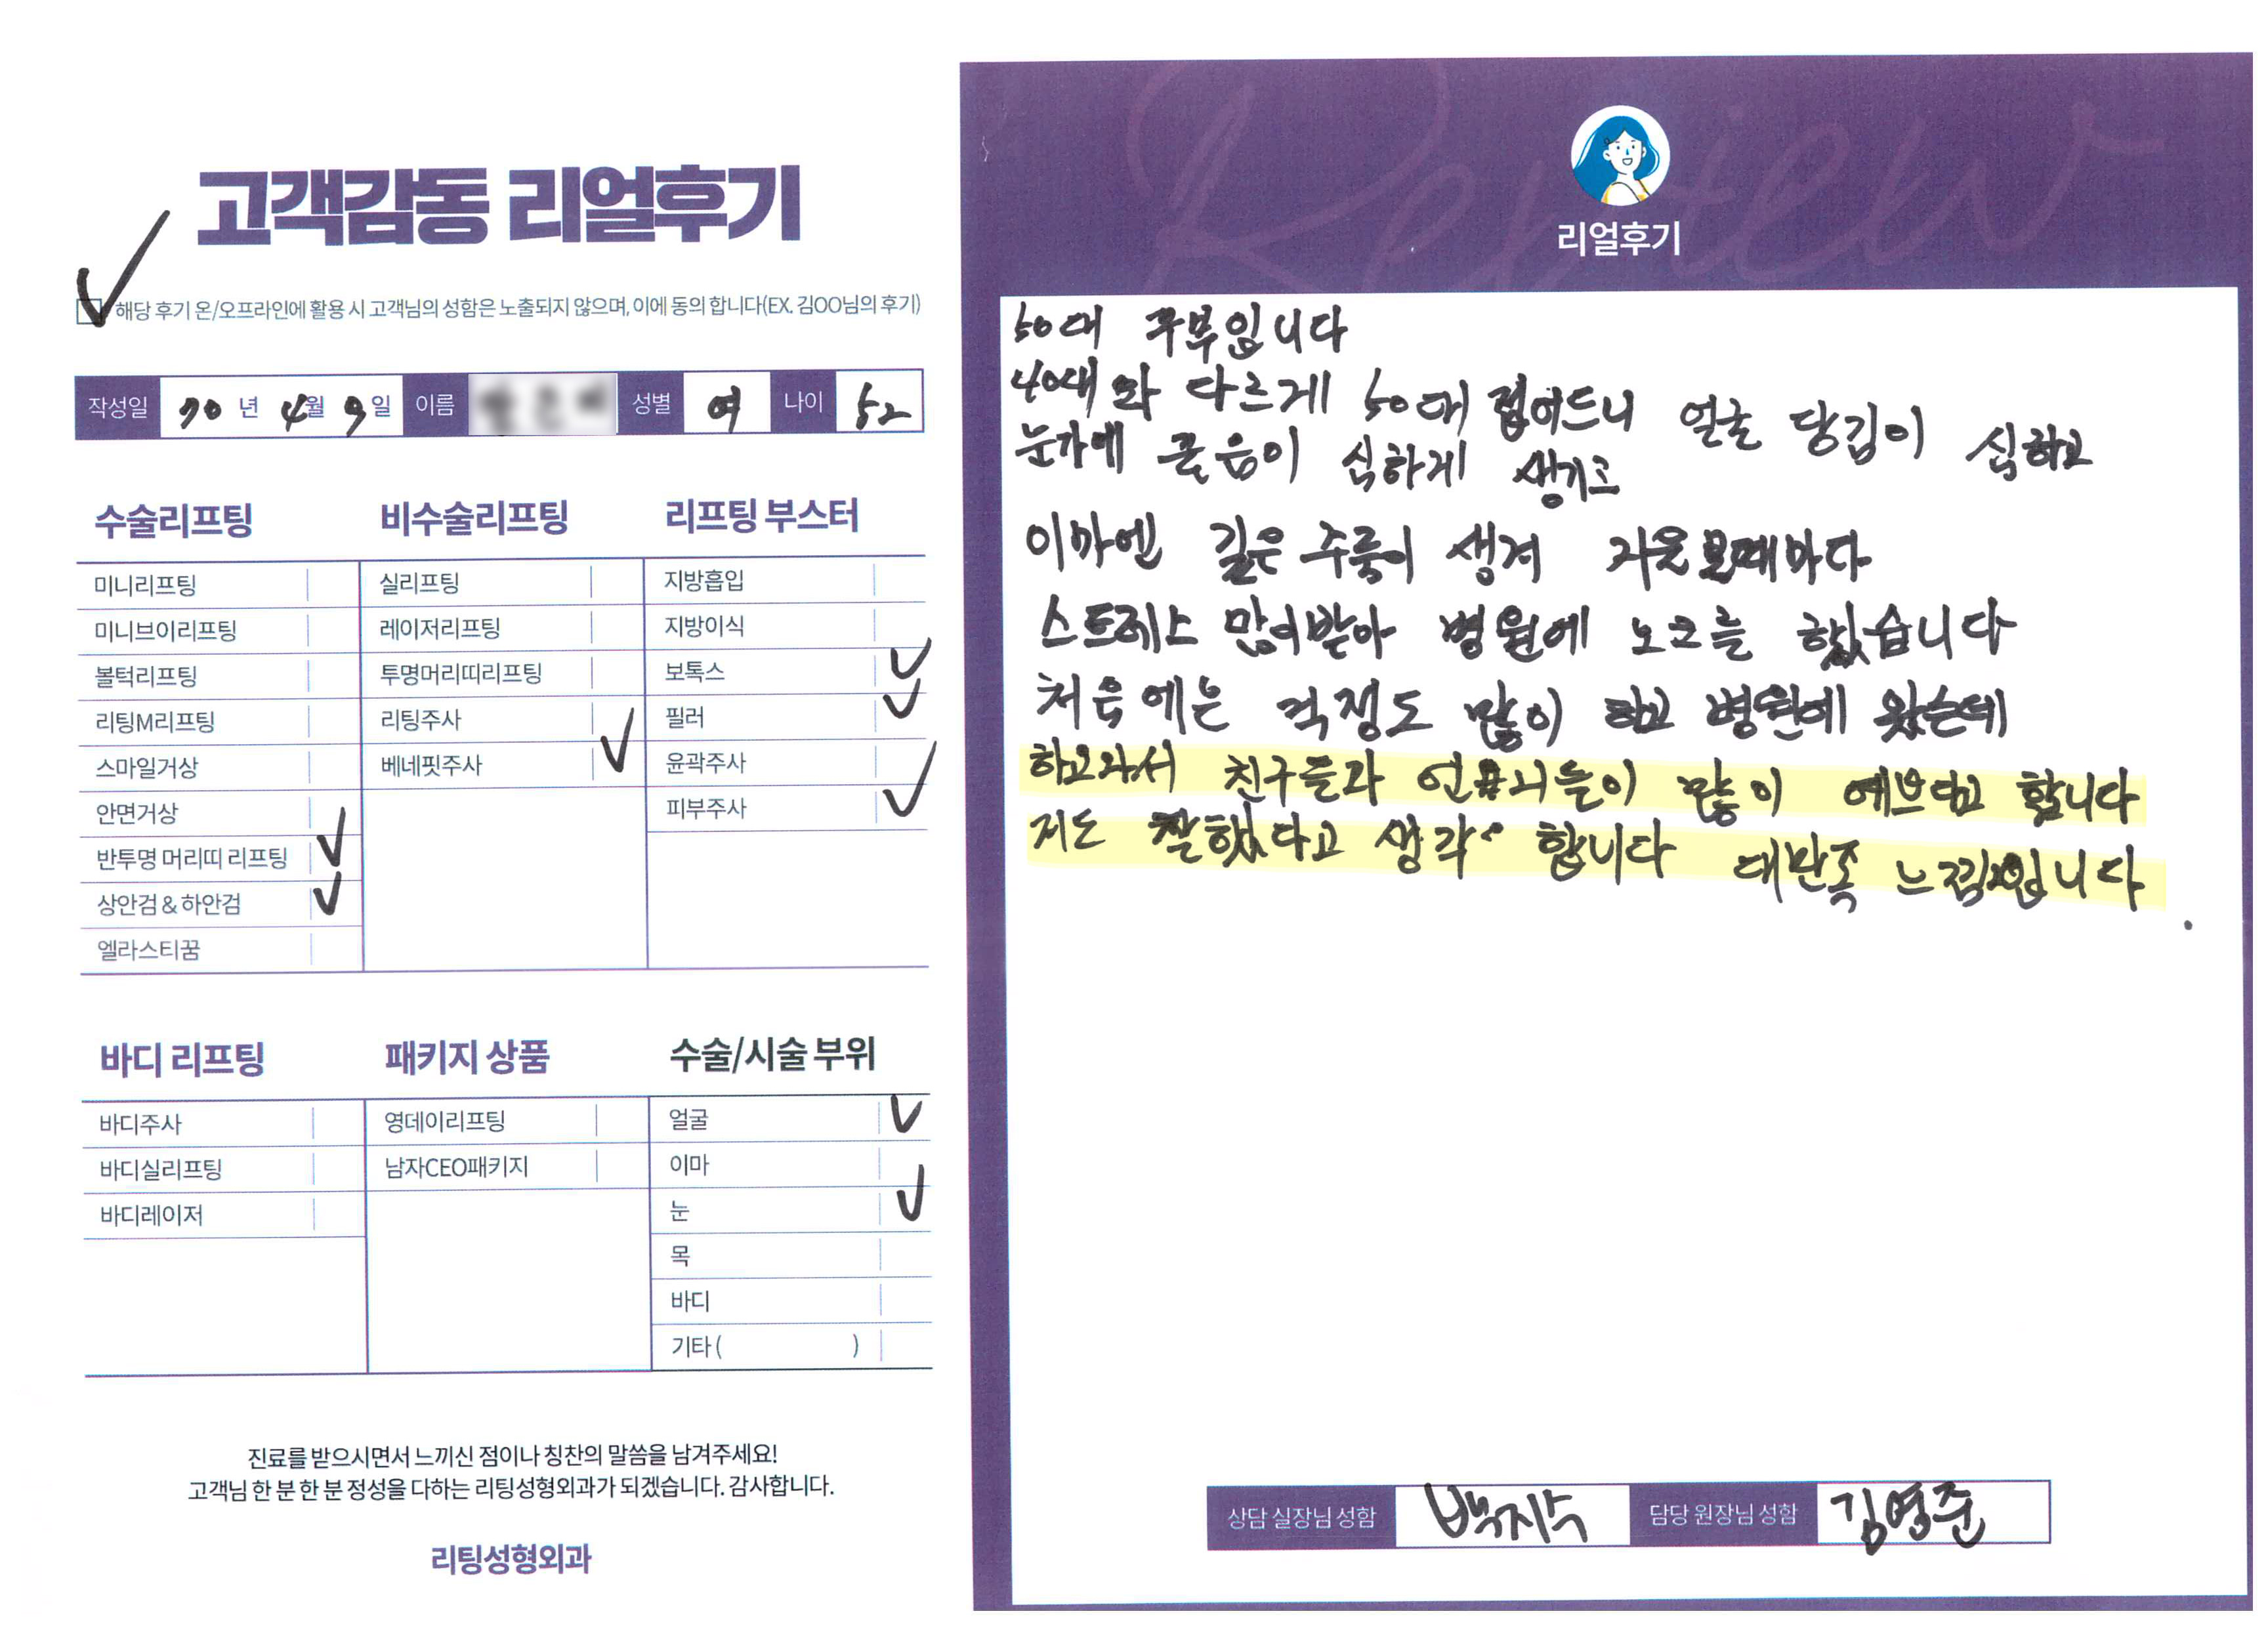 고객감동 리얼후기
해당 후기 온/오프라인에 활용 시 고객님의 성함은 노출되지 않으며, 이에 동의 합니다(EX. 김OO님의 후기)
작성일 20 년 4월 9일 이름 성별 여 나이 52
수술리프팅
미니리프팅
미니브이리프팅
볼턱리프팅
리팅M리프팅
스마일거상
안면거상
반투명 머리띠 리프팅
상안검 & 하안검
엘라스티꿈
비수술리프팅
실리프팅
레이저리프팅
투명머리띠리프팅
리팅주사
베네핏주사
리프팅 부스터
지방흡입
지방이식
보톡스
필러
윤곽주사
피부주사
바디 리프팅
바디주사
바디실리프팅
바디레이저
패키지 상품
영데이리프팅
남자CEO패키지
수술/시술 부위
얼굴
이마
눈
목
바디
기타 ( )
진료를 받으시면서 느끼신 점이나 칭찬의 말씀을 남겨주세요!
고객님 한 분 한 분 정성을 다하는 리팅성형외과가 되겠습니다. 감사합니다.
리팅성형외과
Review
리얼후기
50대 주부입니다
40대와 다르게 50대 접어드니 얼굴 당김이 심하고
눈가에 졸음이 심하게 생기고
이마엔 깊은 주름이 생겨 거울볼때마다
스트레스 많이받아 병원에 노크를 했습니다
처음에는 걱정도 많이 하고 병원에 왔는데
하고와서 친구들과 들이 많이 예쁘다고 합니다
저도 잘했다고 생각 합니다 대만족 느낌입니다.
상담 실장님 성함 백지수 담당 원장님 성함 김영준